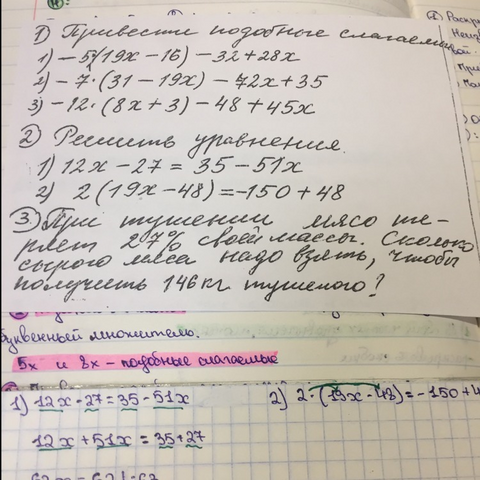 ① Привести подобные слагаемые
1) – 5(19x – 16) – 32 + 28x
2) – 7·(31 – 19x) – 72x + 35
3) –12·(8x + 3) – 48 + 45x
② Решить уравнения.
1) 12x – 27 = 35 – 51x
2) 2(19x – 48) = –150 + 48
③ При тушении мясо те-
ряет 27% своей массы. Сколько
сырого мяса надо взять, чтобы
получить 146 кг тушеного?
буквенный множителю.
5x и 8x – подобные слагаемые
1) 12x – 27 = 35 – 51x
2) 2·(19x – 48) = –150 + 4
12x + 51x = 35 + 27